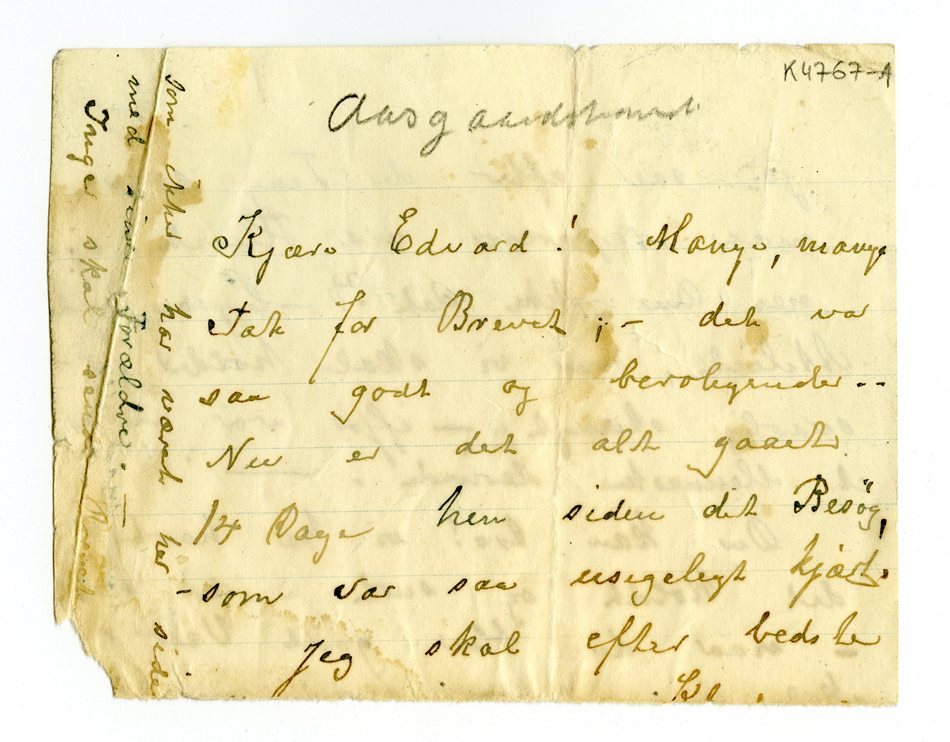 K4767-A
Aasgaardstrand
Kjære Edvard! Mange, mange
Tak for Brevet; – det var
saa godt og beroligende --
Nu er det alt gaaet
14 Dage hen siden det Besøg,
– som var saa usigeligt kjært.
Jeg skal efter bedste
som ikke har været her siden
med sine Forældre
Inger skal